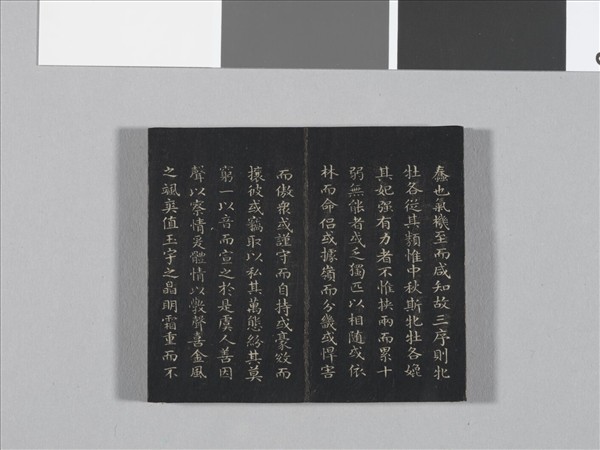 蠢也氣機至而咸知故三序則牝
牡各從其類惟中秋斯牝牡各嬎
其妃强有力者不惟挾兩而累十
弱無能者或乏獨匹以相隨或依
林而命侶或據嶺而分畿或悍害
而傲眾或謹守而自持或豪效而
攘攸或竊取以私其萬態紛其莫
窮一以音而宣之於是虞人善因
聲以察情爰體情以斆聲喜金風
之颯爽值玉宇之晶明霜重而不